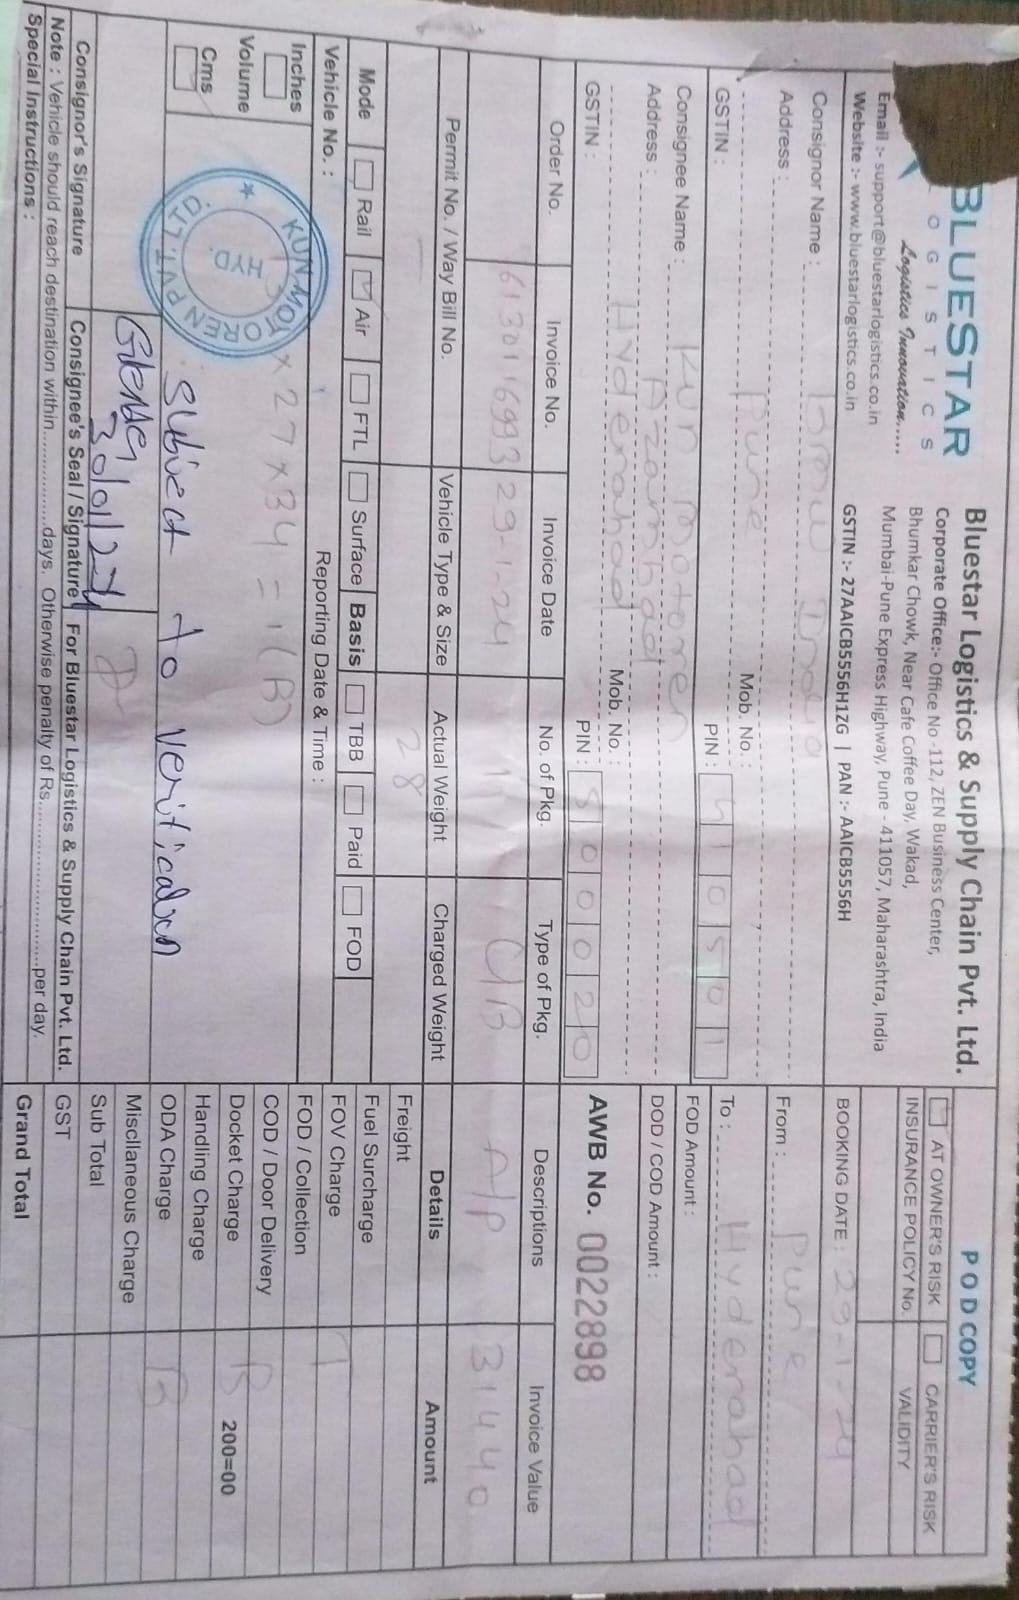 BLUESTAR
LOGISTICS
Logistics Innovation.....
Email :- support@bluestarlogistics.co.in
Website :- www.bluestarlogistics.co.in
Bluestar Logistics & Supply Chain Pvt. Ltd.
Corporate Office:- Office No -112, ZEN Business Center,
Bhumkar Chowk, Near Cafe Coffee Day, Wakad,
Mumbai-Pune Express Highway, Pune - 411057, Maharashtra, India
GSTIN :- 27AAICB5556H1ZG | PAN :- AAICB5556H
POD COPY
AT OWNER'S RISK CARRIER'S RISK
INSURANCE POLICY No. VALIDITY
BOOKING DATE : 29-1-24
Consignor Name : bmw India
Address :
Pune Mob. No. :
GSTIN : PIN : 410501
From : Pune
To : Hyderabad
Consignee Name : Kun Motoren
Address : Azambad
Hyderabad Mob. No. :
GSTIN : PIN : 500020
FOD Amount :
DOD / COD Amount :
AWB No. 0022898
Order No. Invoice No. Invoice Date No. of Pkg. Type of Pkg. Descriptions Invoice Value
6130116993 29-1-24 1 C/B A/P 31440
Permit No. / Way Bill No. Vehicle Type & Size Actual Weight Charged Weight
28
Mode Rail Air FTL Surface Basis TBB Paid FOD
Vehicle No. : Reporting Date & Time :
Inches
Volume
Cms
x 27 x 34 = 1 (B)
KUN MOTOREN PVT. LTD.
HYD.
Subject to verification
30/01/24
Consignor's Signature Consignee's Seal / Signature For Bluestar Logistics & Supply Chain Pvt. Ltd.
Note : Vehicle should reach destination within.................days. Otherwise penalty of Rs.............................per day.
Special Instructions :
Details Amount
Freight
Fuel Surcharge
FOV Charge T
FOD / Collection
COD / Door Delivery
Docket Charge B 200=00
Handling Charge
ODA Charge B
Miscllaneous Charge
Sub Total
GST
Grand Total